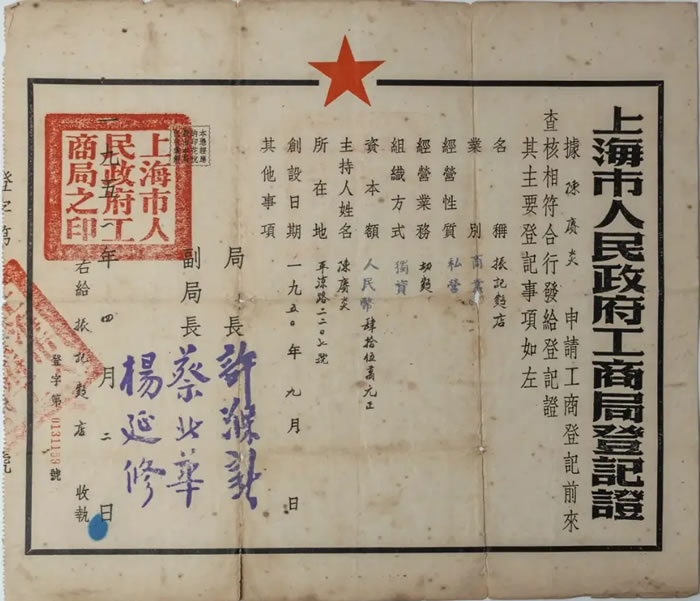 上海市人民政府工商局登記證
據陳廣炎申請工商登記前來
查核相符合行發給登記證
其主要登記事項如左
名稱 振記麪店
業別 商業
經營性質 私營
經營業務 切麪
組織方式 獨資
資本額 人民幣肆拾伍萬元正
主持人姓名 陳廣炎
所在地 平涼路二二〇七號
創設日期 一九五〇年九月 日
其他事項
局長 許滌新
副局長 蔡北華
楊延修
一九五二年四月二日
右給振記麪店收執
登字第0131159號
上海市人
民政府工
商局之印
登字第
號